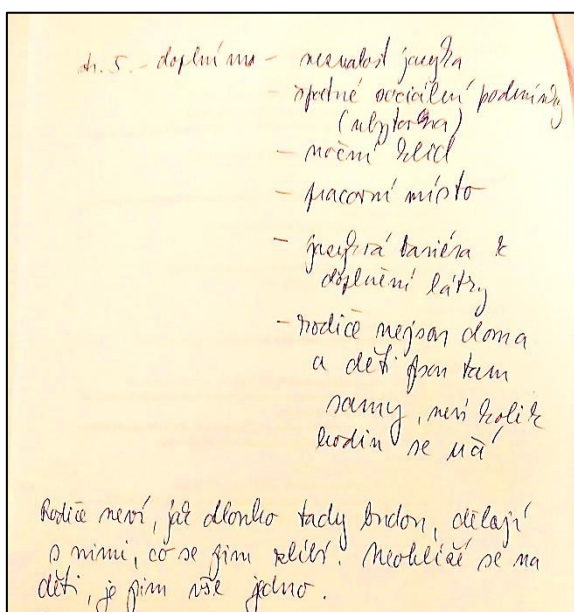 str. 5. - doplníme - neznalost jazyka
- špatné sociální podmínky
(ubytovna)
- noční klid
- pracovní místo
- jazyková bariéra k
doplnění látky
- rodiče nejsou doma
a děti jsou tam
samy, neví kolik
hodin se učí
Rodiče neví, jak dlouho tady budou, dělají
s nimi, co se jim zlíbí. Neohlíží se na
děti, je jim vše jedno.